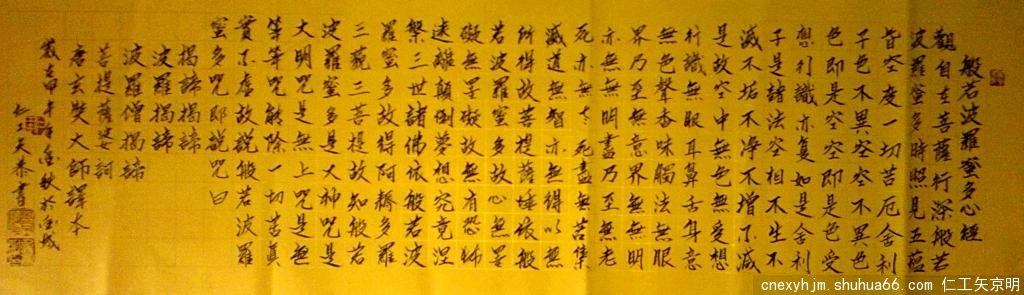 般若波羅蜜多心經
觀自在菩薩行深般若
波羅蜜多時照見五蘊
皆空度一切苦厄舍利
子色不異空空不異色
色即是空空即是色受
想行識亦复如是舍利
子是諸法空相不生不
滅不垢不淨不增不減
是故空中無色無受想
行識無眼耳鼻舌身意
無色聲香味觸法無眼
界乃至無意界無無明
亦無無明盡乃至無老
死亦無老死盡無苦集
滅道無智亦無得以無
所得故菩提薩埵依般
若波羅蜜多故心無罣
礙無罣礙故無有恐怖
遠離顛倒夢想究竟涅
槃三世諸佛依般若波
羅蜜多故得阿耨多羅
三藐三菩提故知般若
波羅蜜多是大神咒是
大明咒是無上咒是無
等等咒能除一切苦真
實不虛故說般若波羅
蜜多咒即說咒曰
揭諦揭諦
波羅揭諦
波羅僧揭諦
菩提薩婆訶
唐玄奘大師譯本
歲在甲午年金秋於金城
仁工矢書
cnexyhjm.shuhua66.com 仁工矢京明